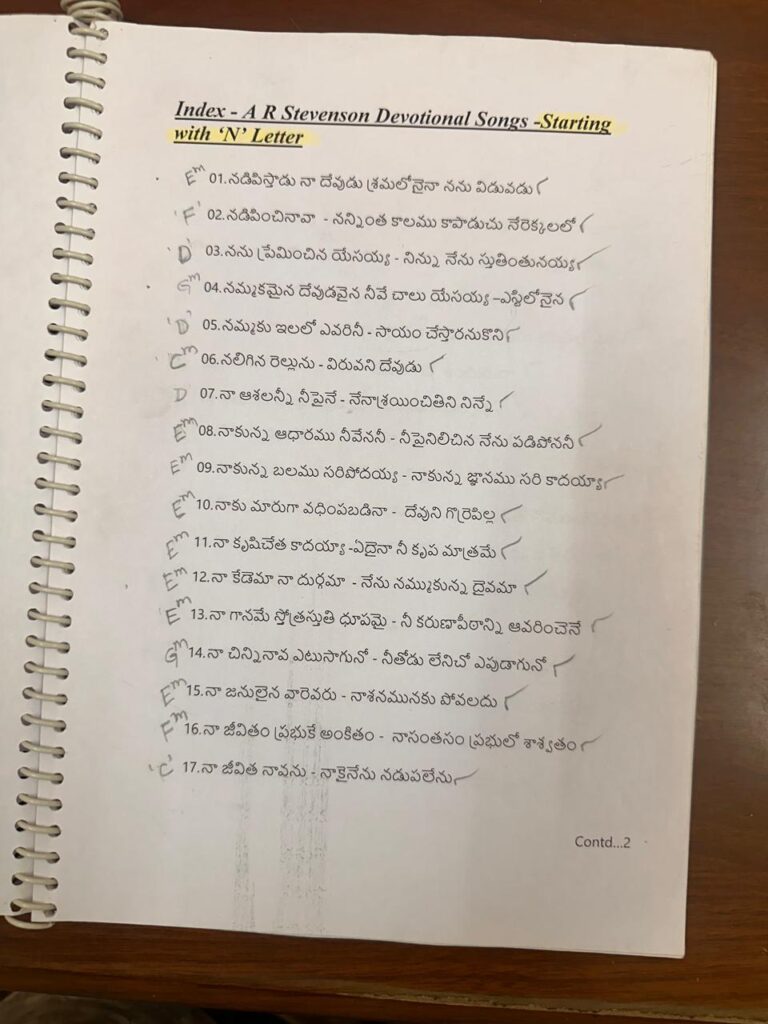 Index - A R Stevenson Devotional Songs -Starting
with ‘N’ Letter
Em 01.నడిపిస్తాడు నా దేవుడు శ్రమలోనైనా నను విడువడు
'F' 02.నడిపించినావా - నన్నింత కాలము కాపాడుచు నేరెక్కలలో
'D' 03.నను ప్రేమించిన యేసయ్య - నిన్ను నేను స్తుతింతునయ్య
Gm 04.నమ్మకమైన దేవుడవైన నీవే చాలు యేసయ్య –ఎస్థిలోనైన
'D' 05.నమ్మకు ఇలలో ఎవరినీ - సాయం చేస్తారనుకొని
Cm 06.నలిగిన రెల్లును - విరువని దేవుడు
D 07.నా ఆశలన్నీ నీపైనే - నేనాశ్రయించితిని నిన్నే
Em 08.నాకున్న ఆధారము నీవేననీ - నీపైనిలిచిన నేను పడిపోననీ
Em 09.నాకున్న బలము సరిపోదయ్య - నాకున్న జ్ఞానము సరి కాదయ్యా
Em 10.నాకు మారుగా వధింపబడినా - దేవుని గొర్రెపిల్ల
Em 11.నా కృషిచేత కాదయ్యా -ఏదైనా నీ కృప మాత్రమే
Em 12.నా కేడెమా నా దుర్గమా - నేను నమ్ముకున్న దైవమా
Em 13.నా గానమే స్తోత్రస్తుతి ధూపమై - నీ కరుణాపీఠాన్ని ఆవరించెనే
Gm 14.నా చిన్నినావ ఎటుసాగునో - నీతోడు లేనిచో ఎపుడాగునో
Em 15.నా జనులైన వారెవరు - నాశనమునకు పోవలదు
Fm 16.నా జీవితం ప్రభుకే అంకితం - నాసంతసం ప్రభులో శాశ్వతం
'C' 17.నా జీవిత నావను - నాకైనేను నడుపలేను
Contd...2